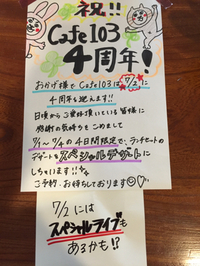 祝!!
Cafe103
4周年!
おかげ様で Cafe103は 7/2に
4周年を迎えます!!
日頃からご愛顧頂いている皆様に
感謝の気持ちをこめまして
7/1〜7/4の4日間限定で、ランチセットの
デザートをスペシャルデザートに
しちゃいます!!
ご予約、お待ちしております
7/2には
スペシャルライブも
あるかも!?